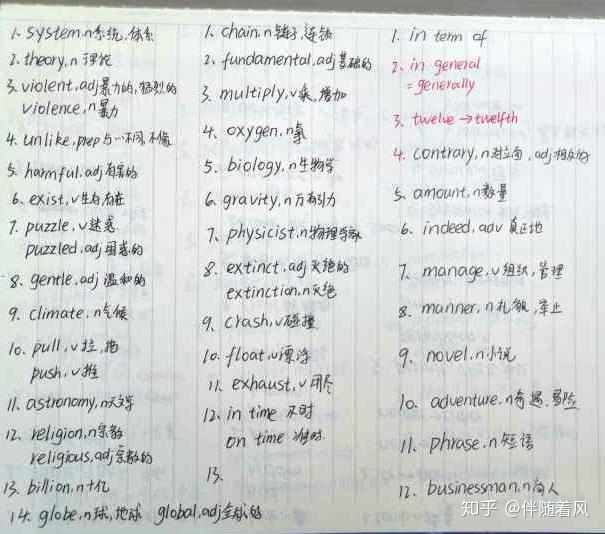 1. system.n系统,体系
2. theory,n 理论
3. violent,adj暴力的,猛烈的
violence,n暴力
4. unlike,prep与…不同,不像
5. harmful.adj有害的
6. exist,v生存存在
7. puzzle,v迷惑
puzzled,adj困惑的
8. gentle,adj 温和的
9. climate,n气候
10. pull,v拉,拖
push,v推
11. astronomy,n天文学
12. religion,n宗教
religious,adj宗教的
13. billion,n十亿
14. globe,n球,地球 global,adj全球的
1. chain.n链子,连锁
2. fundamental,adj基础的
3. multiply,v乘,增加
4. oxygen,n氧
5. biology,n生物学
6. gravity,n万有引力
7. physicist,n物理学家
8. extinct,adj灭绝的
extinction,n灭绝
9. crash,v碰撞
10. float,v漂浮
11. exhaust,v用尽
12. in time 及时
on time 准时
13.
1. in term of
2. in general
=generally
3. twelve→twelfth
4. contrary,n对立面,adj相反的
5. amount,n数量
6. indeed,adv 真正地
7. manage,v组织,管理
8. manner,n礼貌,举止
9. novel,n小说
10. adventure.n奇遇,冒险
11. phrase.n短语
12. businessman,n商人
知乎 @伴随着风